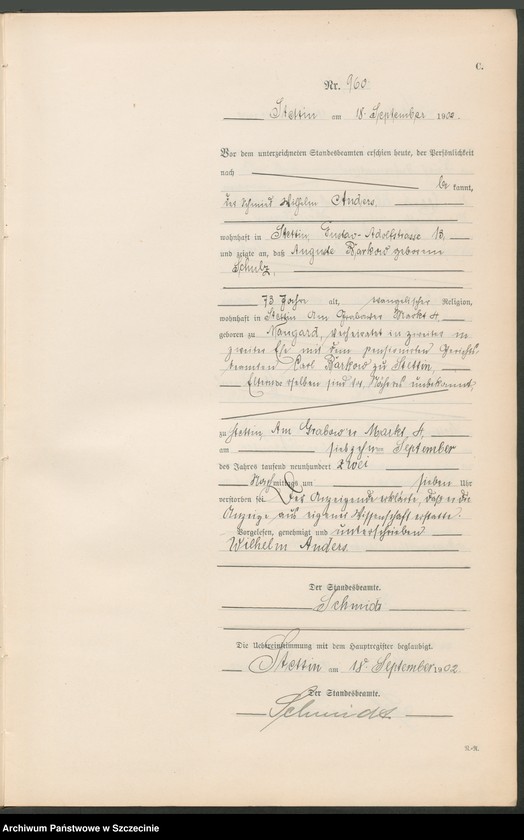 C.
Nr. 960.
Stettin am 18. September 1902.
Vor dem unterzeichneten Standesbeamten erschien heute, der Persönlichkeit
nach
be kannt,
der Schmied Wilhelm Anders,
wohnhaft in Stettin, Gustav-Adolfstrasse 13,
und zeigte an, daß Auguste Barkow geborene
Schulz,
73 Jahre alt, evangelischer Religion,
wohnhaft in Stettin Am Grabower Markt 4,
geboren zu Naugard, verheiratet in zweiter
Ehe mit dem pensionirten Gerichts-
beamten Carl Barkow zu Stettin,
Eltern derselben sind tot, Näheres unbekannt,
zu Stettin, Am Grabower Markt, 4,
am siebzehnten September
des Jahres tausend neunhundert zwei
Nach mittags um sieben Uhr
verstorben sei. Der Anzeigende erklärte, daß er die
Anzeige aus eigener Wissenschaft erstatte.
Vorgelesen, genehmigt und unterschrieben
Wilhelm Anders.
Der Standesbeamte.
Schmidt
Die Uebereinstimmung mit dem Hauptregister beglaubigt.
Stettin am 18. September 1902.
Der Standesbeamte.
Schmidt
N.-R.
Archiwum Państwowe w Szczecinie